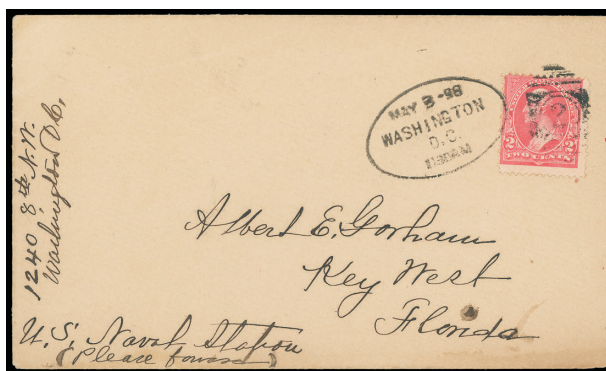 1240 8th N.W.
Washington D.C.
MAY 2-98
WASHINGTON
D.C.
2 2
TWO CENTS
Albert E. Gorham
Key West
Florida
U.S. Naval Station
(Please forward)